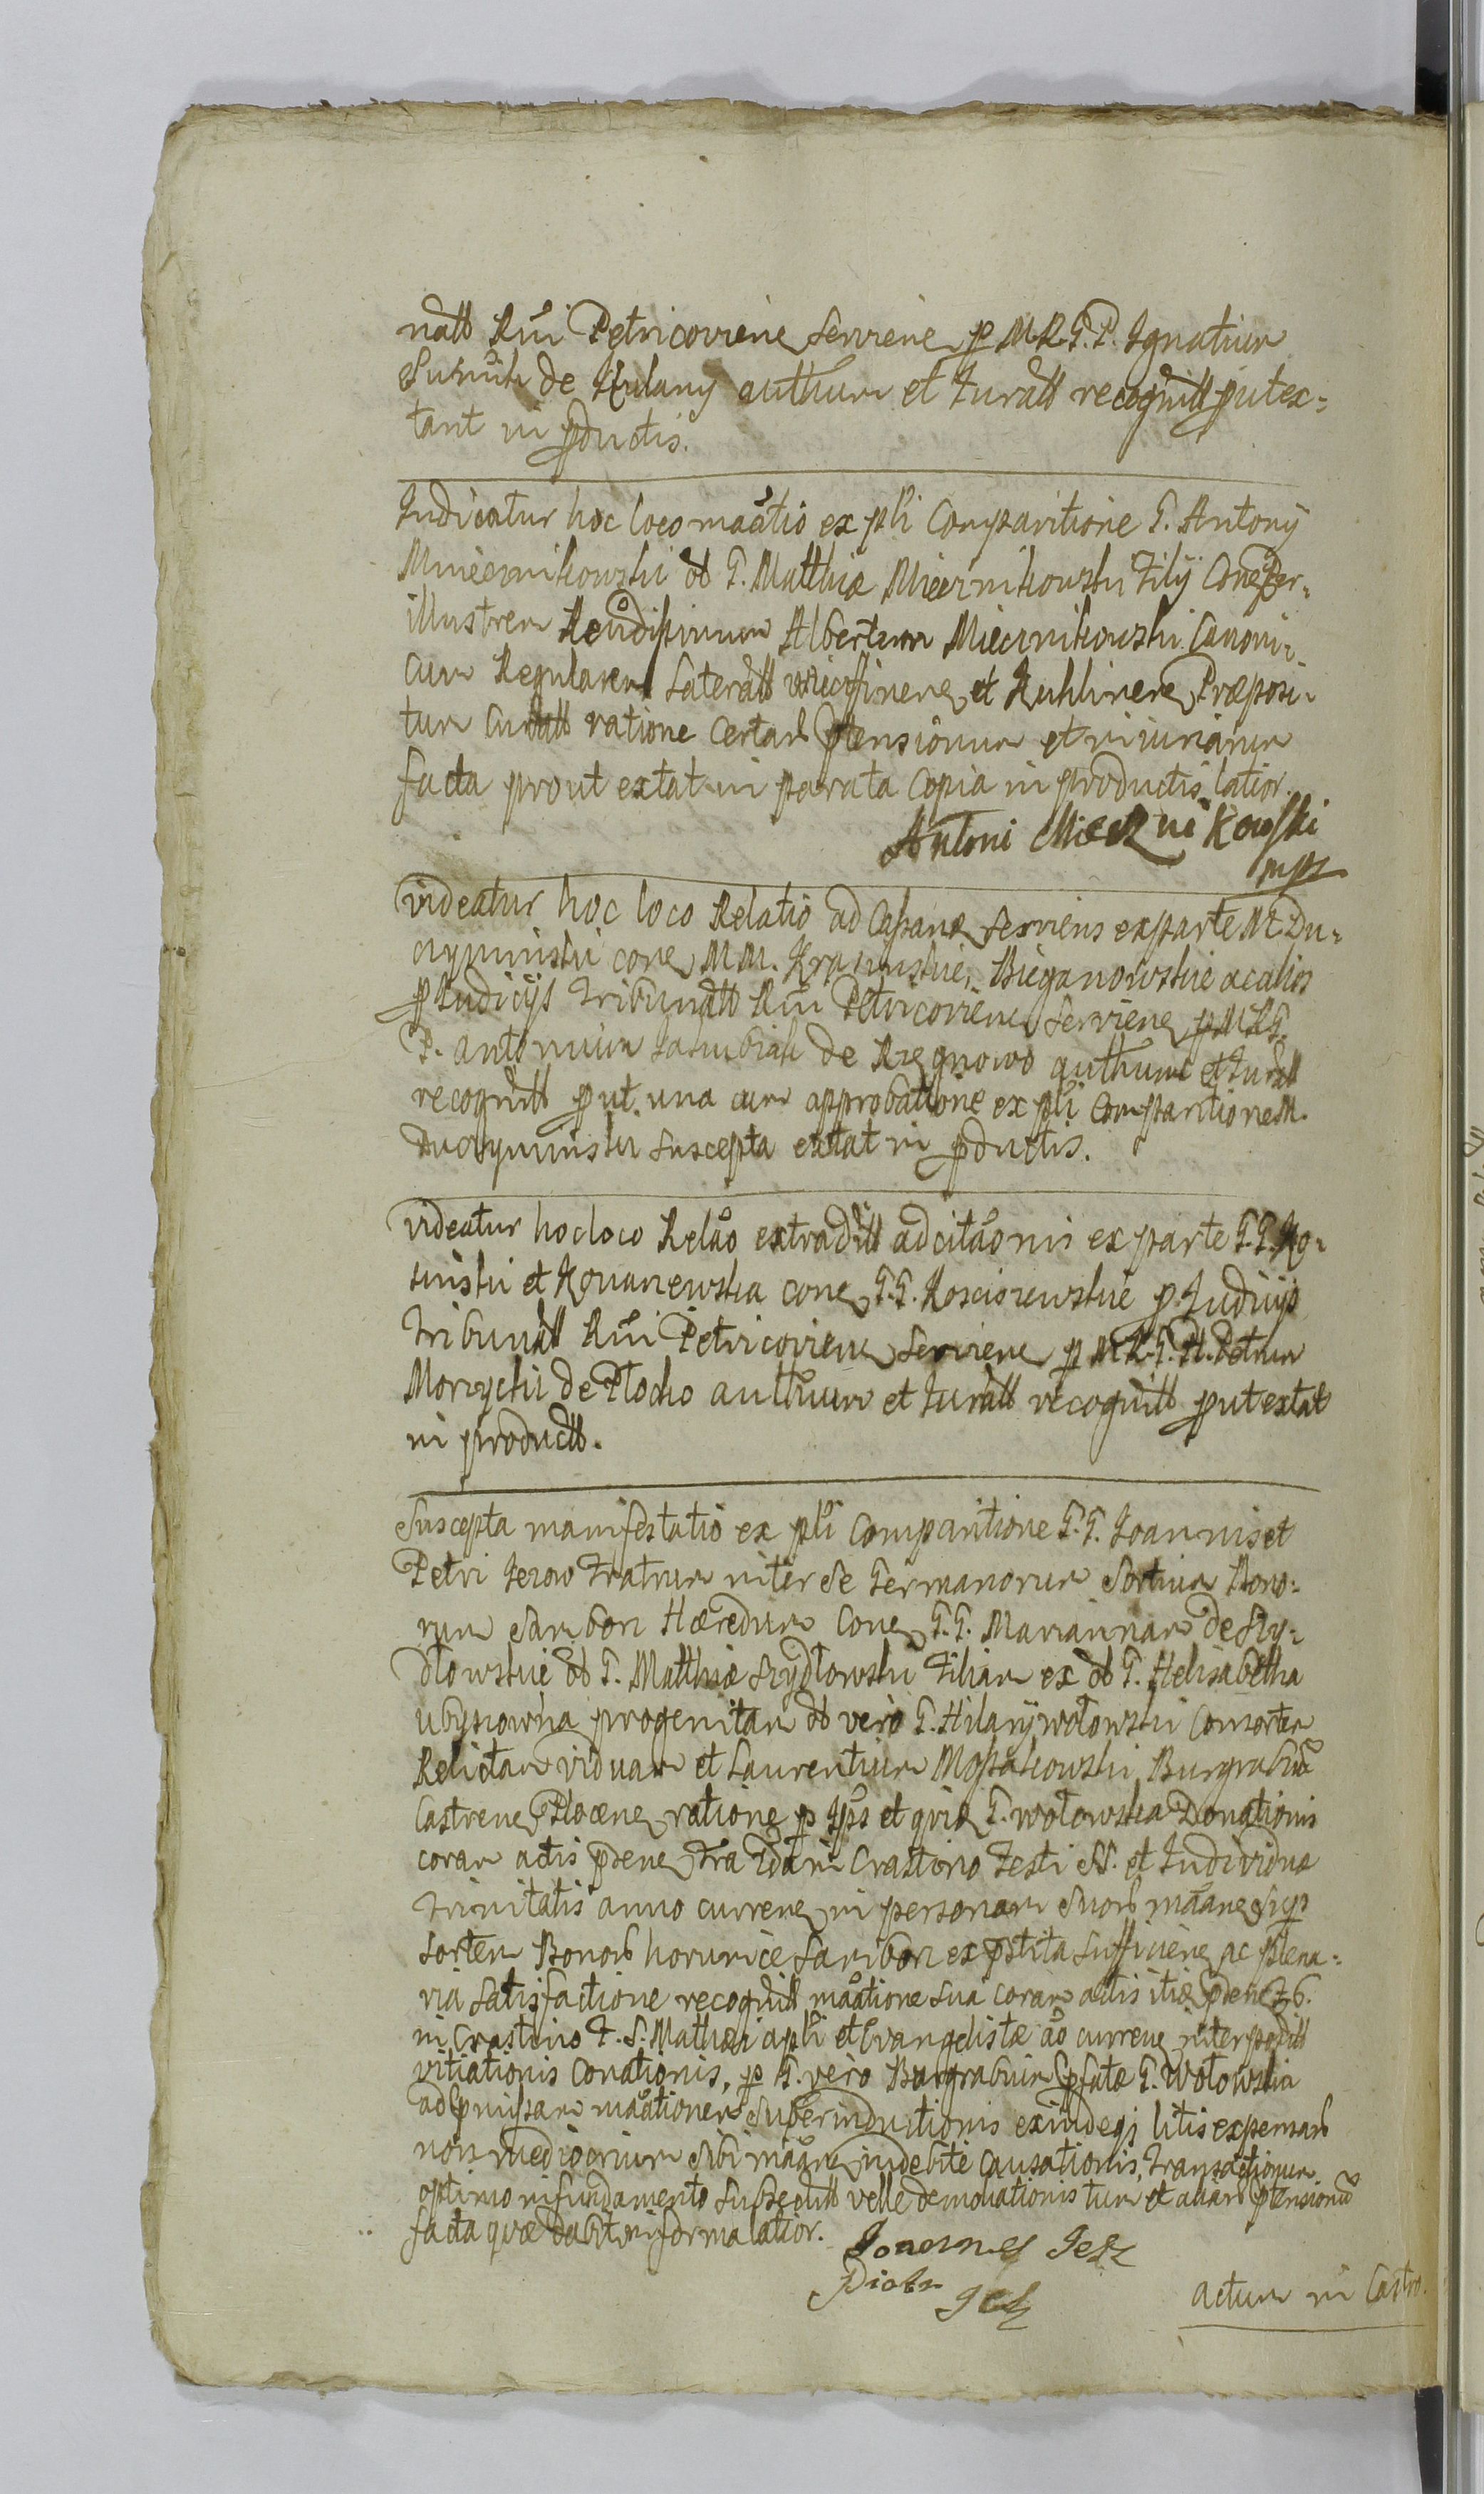 natt Rni Petricoviens serviens p M.R.G.P. Ignatium
de Kulany authum et Juratt recognitt put ex-
tant in pductis.
Judicatur hoc loco maãtio ex pli Comparitione G. Antonij
Miecznikowski ol G. Matthiæ Miecznikowski Filij Cone Per-
illustrem Rendissimum Albertum Miecznikowski Canoni-
cum Regularem Lateratt et Præposi-
tum Curatt ratione certar ptensionum et iniuriarum
facta prout extat in parata Copia in productis latior.
Antoni Miecznikowski
mpr
videatur hoc loco Relatio ad Cassanæ serviens ex parte M. Du-
czyminski cone MM. Krasinskie, Bieganowskie ac alios
p Judicijs Tribunatt Rni Petricoviens serviens p M.R.G.
P. Antonium de Rzegnowo authum et Juratt
recognitt put una cum approbatione ex pli Comparitione M.
Duczyminski suscepta extat in pductis.
videatur hoc loco Relão extraditt adcitaõnis ex parte G.G. Ko-
et cone G.G. Kosciszewskie p Judicijs
Tribunatt Rni Petricoviens serviens p M.R.G.H. Petrum
Morzycki de Plocko authum et Juratt recognitt put extat
in productt.
Suscepta manifestatio ex pli Comparitione G.G. Joannis et
Petri Jezow Fratrum inter se Germanorum Sortium Bono-
rum Haeredum Cone G.G. Mariannam de Szy-
dłowskie ol G. Matthiæ Szydłowski Filiam ex ol G. Helisabetha
progenitam ol vero G. Hilarij Wołowski Consortem
Relictam viduam et Laurentium Mostakowski Burgrabiũ
Castrens Plocens ratione p Ips et quidẽ G. Wołowska Donationis
coram actis pdene fra 2dam Crastino Festi SS. et Individuæ
Trinitatis anno currene in personam suor maãne sup
sortem Bonor horumce ex pstita sufficiene ac plena-
ria satisfactione recognitt maãtione sua coram actis itid pdene f. 6.
in Crastino F. S. Mathæi apli et Evangelistæ aõ currene interpositt
vitiationis Conationis, p G. vero Burgrabium pfatæ G. Wołowska
ad pmissam maãtionem superinductionis exindeq litis expensar
non mediocrium sibi maãne indebite causationis, transactionum
optimo in fundamento subsecutt velle demoliationis tum et aliar ptensionũ
facta quæ dabit in forma latior.
Joannes Jeż
Piotr Jeż
Actum in Castro.